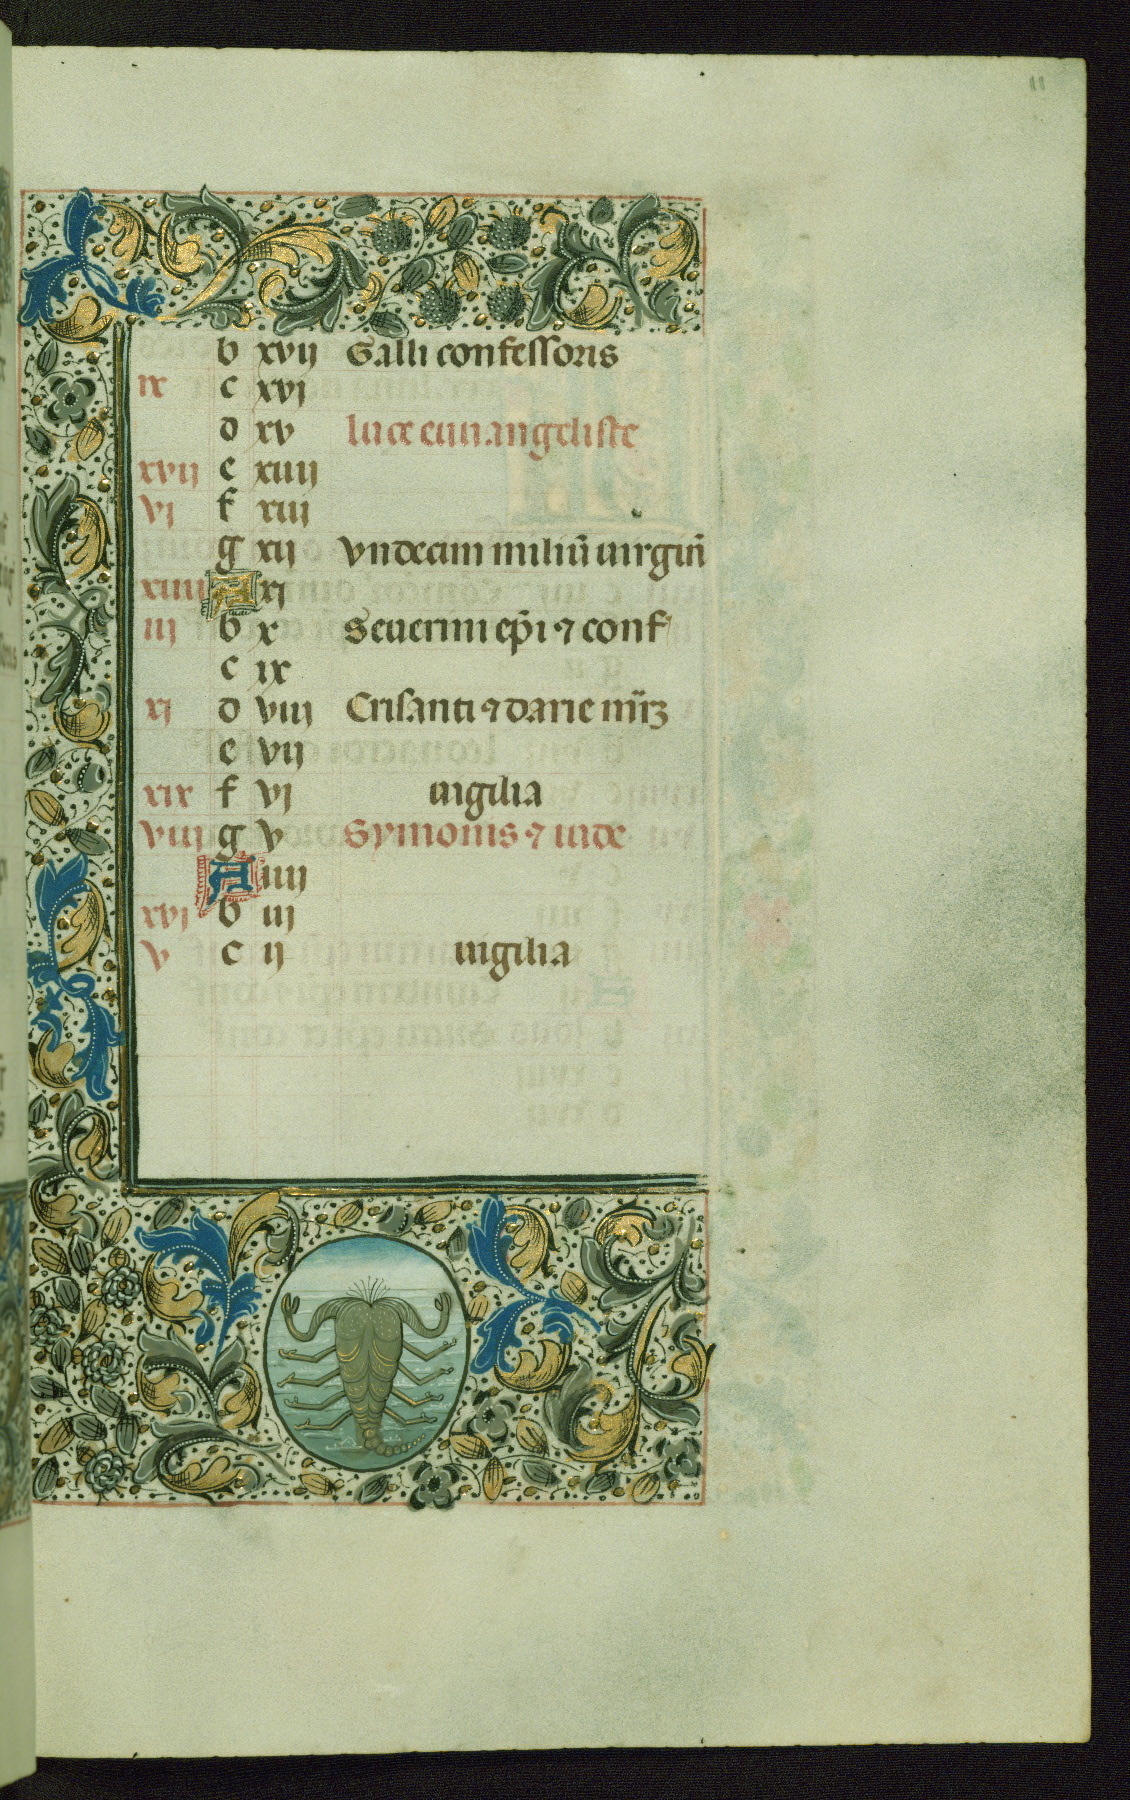 11
b xvij Galli confessoris
ix c xvj
d xv luce euuangeliste
xvij e xiiij
vj f xiij
g xij vndecim miliū uirginū
xiiij A xj
iij b x Seuerini ep̄i ⁊ conf
c ix
xj d viij Crisanti ⁊ darie mr̄ꝫ
e vij
xix f vj uigilia
viij g v Symonis ⁊ iude
A iiij
xvj b iij
v c ij uigilia